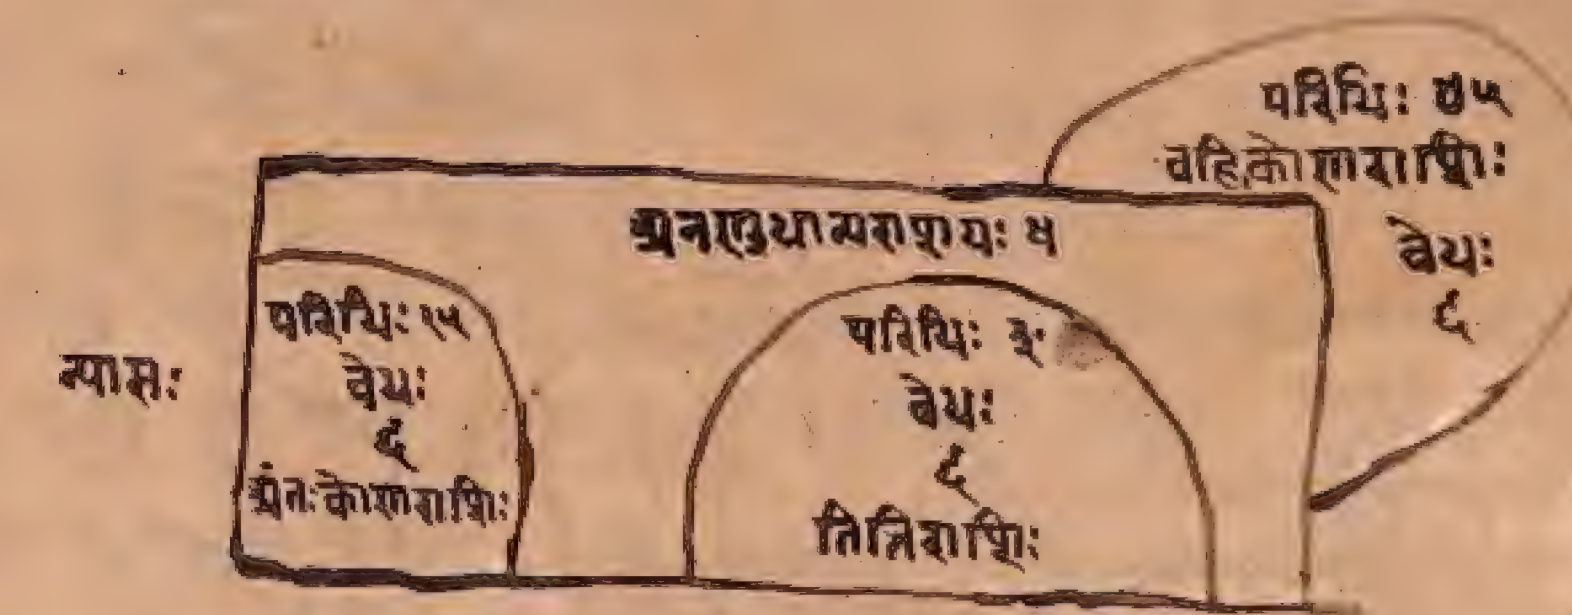 परिधिः ४५
वहिःकोणराशिः
वेधः
६
अनणुधान्यराशयः ५
न्यासः
परिधिः १५
वेधः
६
अंतःकोणराशिः
परिधिः ३०
वेधः
६
तित्तिराशिः